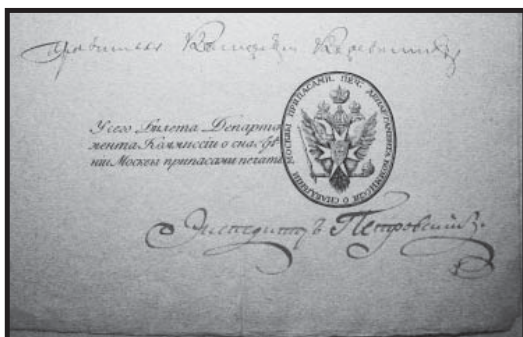 Правитель Канцелярiи
У сего Билета Департа
мента Коммиссiи о снабдѣ
нiи Москвы припасами печать
ПЕЧ: ДЕПАРТАМЕНТА КОММИССIИ О МОСКВЫ ПРИПАСАМИ.
Экспедиторъ Петровскiй.